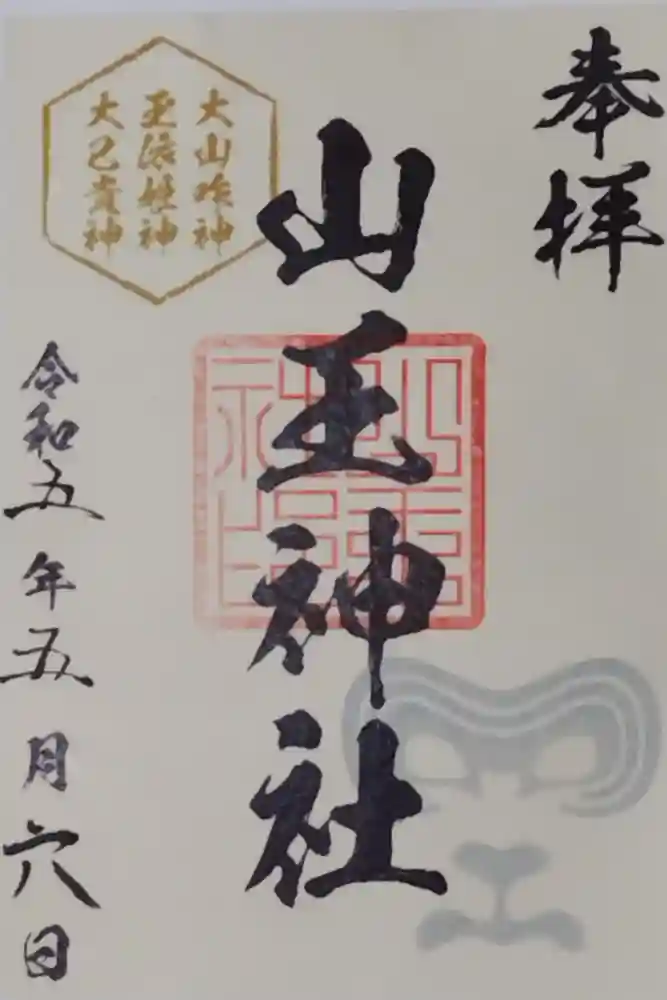 奉拝
大山咋神
玉依姫神
大己貴神
山王神社
令和五年五月六日